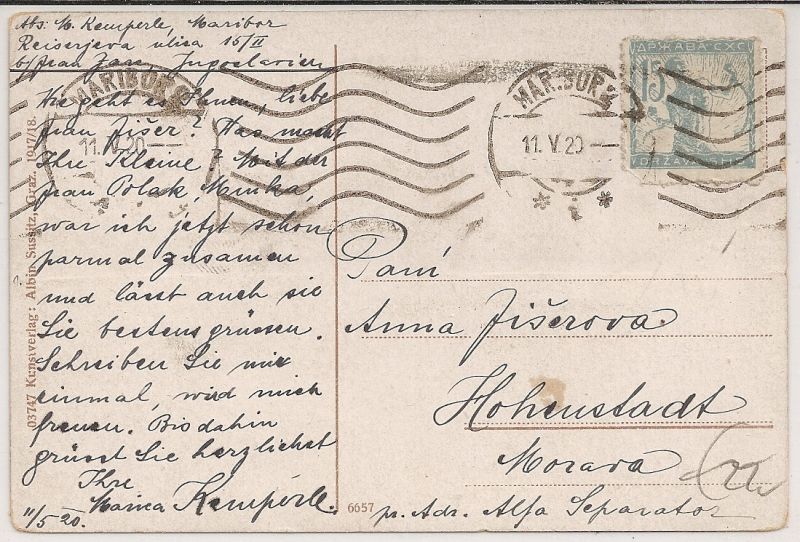 Abs: M. Kemperle, Maribor
Reiserjeva ulica 15/II
b/frau Zora, Jugoslavien
Wie geht es Ihnen, liebe
frau Jišer? Was macht
Ihre Kleine? Mit der
frau Polak, Minka,
war ich jetzt schon
parmal zusamen
und lässt auch sie
Sie bestens grüssen.
Schreiben Sie mir
einmal, wird mich
freuen. Bis dahin
grüsst Sie herzlichst
Ihre
Marica Kemperle.
11/5 20.
03747 Kunstverlag: Albin Sussitz, Graz. 1917/18.
6657
MARIBOR 2
11. V. 20
MARIBOR 2
11. V. 20
ДРЖАВА СХС
15
DRŽAVA SHS
Paní
Anna Jišerova.
Hohenstadt
Morava
pr. Adr. Alfa Separator